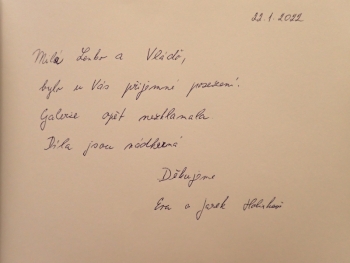 22.1.2022
Milá Lenko a Vláďo,
bylo u Vás příjemné posezení.
Galerie opět nezklamala.
Díla jsou nádherná
Děkujeme
Eva a Jarek